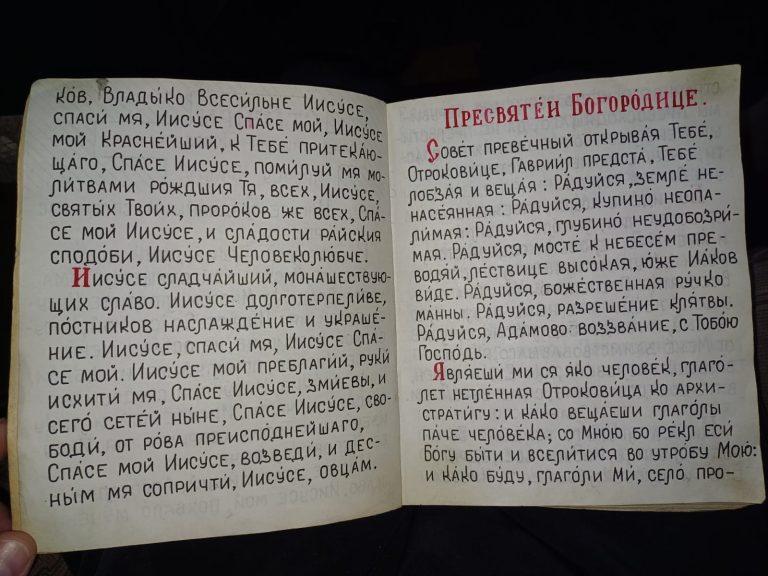 ко́в, Влады́ко Всеси́льне Иису́се,
спаси́ мя, Иису́се Спа́се мой, Иису́се
мой Красне́йший, к Тебе́ притека́ю-
щаго, Спа́се Иису́се, поми́луй мя мо-
ли́твами ро́ждшия Тя, всех, Иису́се,
святы́х Твои́х, проро́ков же всех, Спа́-
се мой Иису́се, и сла́дости ра́йския
сподо́би, Иису́се Человеколю́бче.
Иису́се сладча́йший, мона́шествую-
щих сла́во. Иису́се долготерпели́ве,
по́стников наслажде́ние и украше́-
ние. Иису́се, спаси́ мя, Иису́се Спа́-
се мой. Иису́се мой преблаги́й, руки́
исхити́ мя, Спа́се Иису́се, зми́евы, и
сего́ сете́й ны́не, Спа́се Иису́се, сво-
боди́, от ро́ва преиспо́днейшаго,
Спа́се мой Иису́се, возведи́, и дес-
ны́м мя сопричти́, Иису́се, овца́м.
Пресвяте́й Богоро́дице.
Сове́т преве́чный открыва́я Тебе́,
Отрокови́це, Гаврии́л предста́, Тебе́
лобза́я и веща́я: Ра́дуйся, земле́ не-
насе́янная: Ра́дуйся, купино́ неопа-
ли́мая: Ра́дуйся, глубино́ неудобозри́-
мая. Ра́дуйся, мосте́ к небесе́м пре-
водя́й, ле́ствице высо́кая, ю́же Иа́ков
ви́де. Ра́дуйся, боже́ственная ру́чко
ма́нны. Ра́дуйся, разреше́ние кля́твы.
Ра́дуйся, Ада́мово воззва́ние, с Тобо́ю
Госпо́дь.
Явля́еши ми ся я́ко челове́к, глаго́-
лет нетле́нная Отрокови́ца ко архи-
страти́гу: и ка́ко веща́еши глаго́лы
па́че челове́ка; со Мно́ю бо ре́кл еси́
Бо́гу бы́ти и всели́тися во утро́бу Мою́:
и ка́ко бу́ду, глаго́ли Ми́, село́ про-